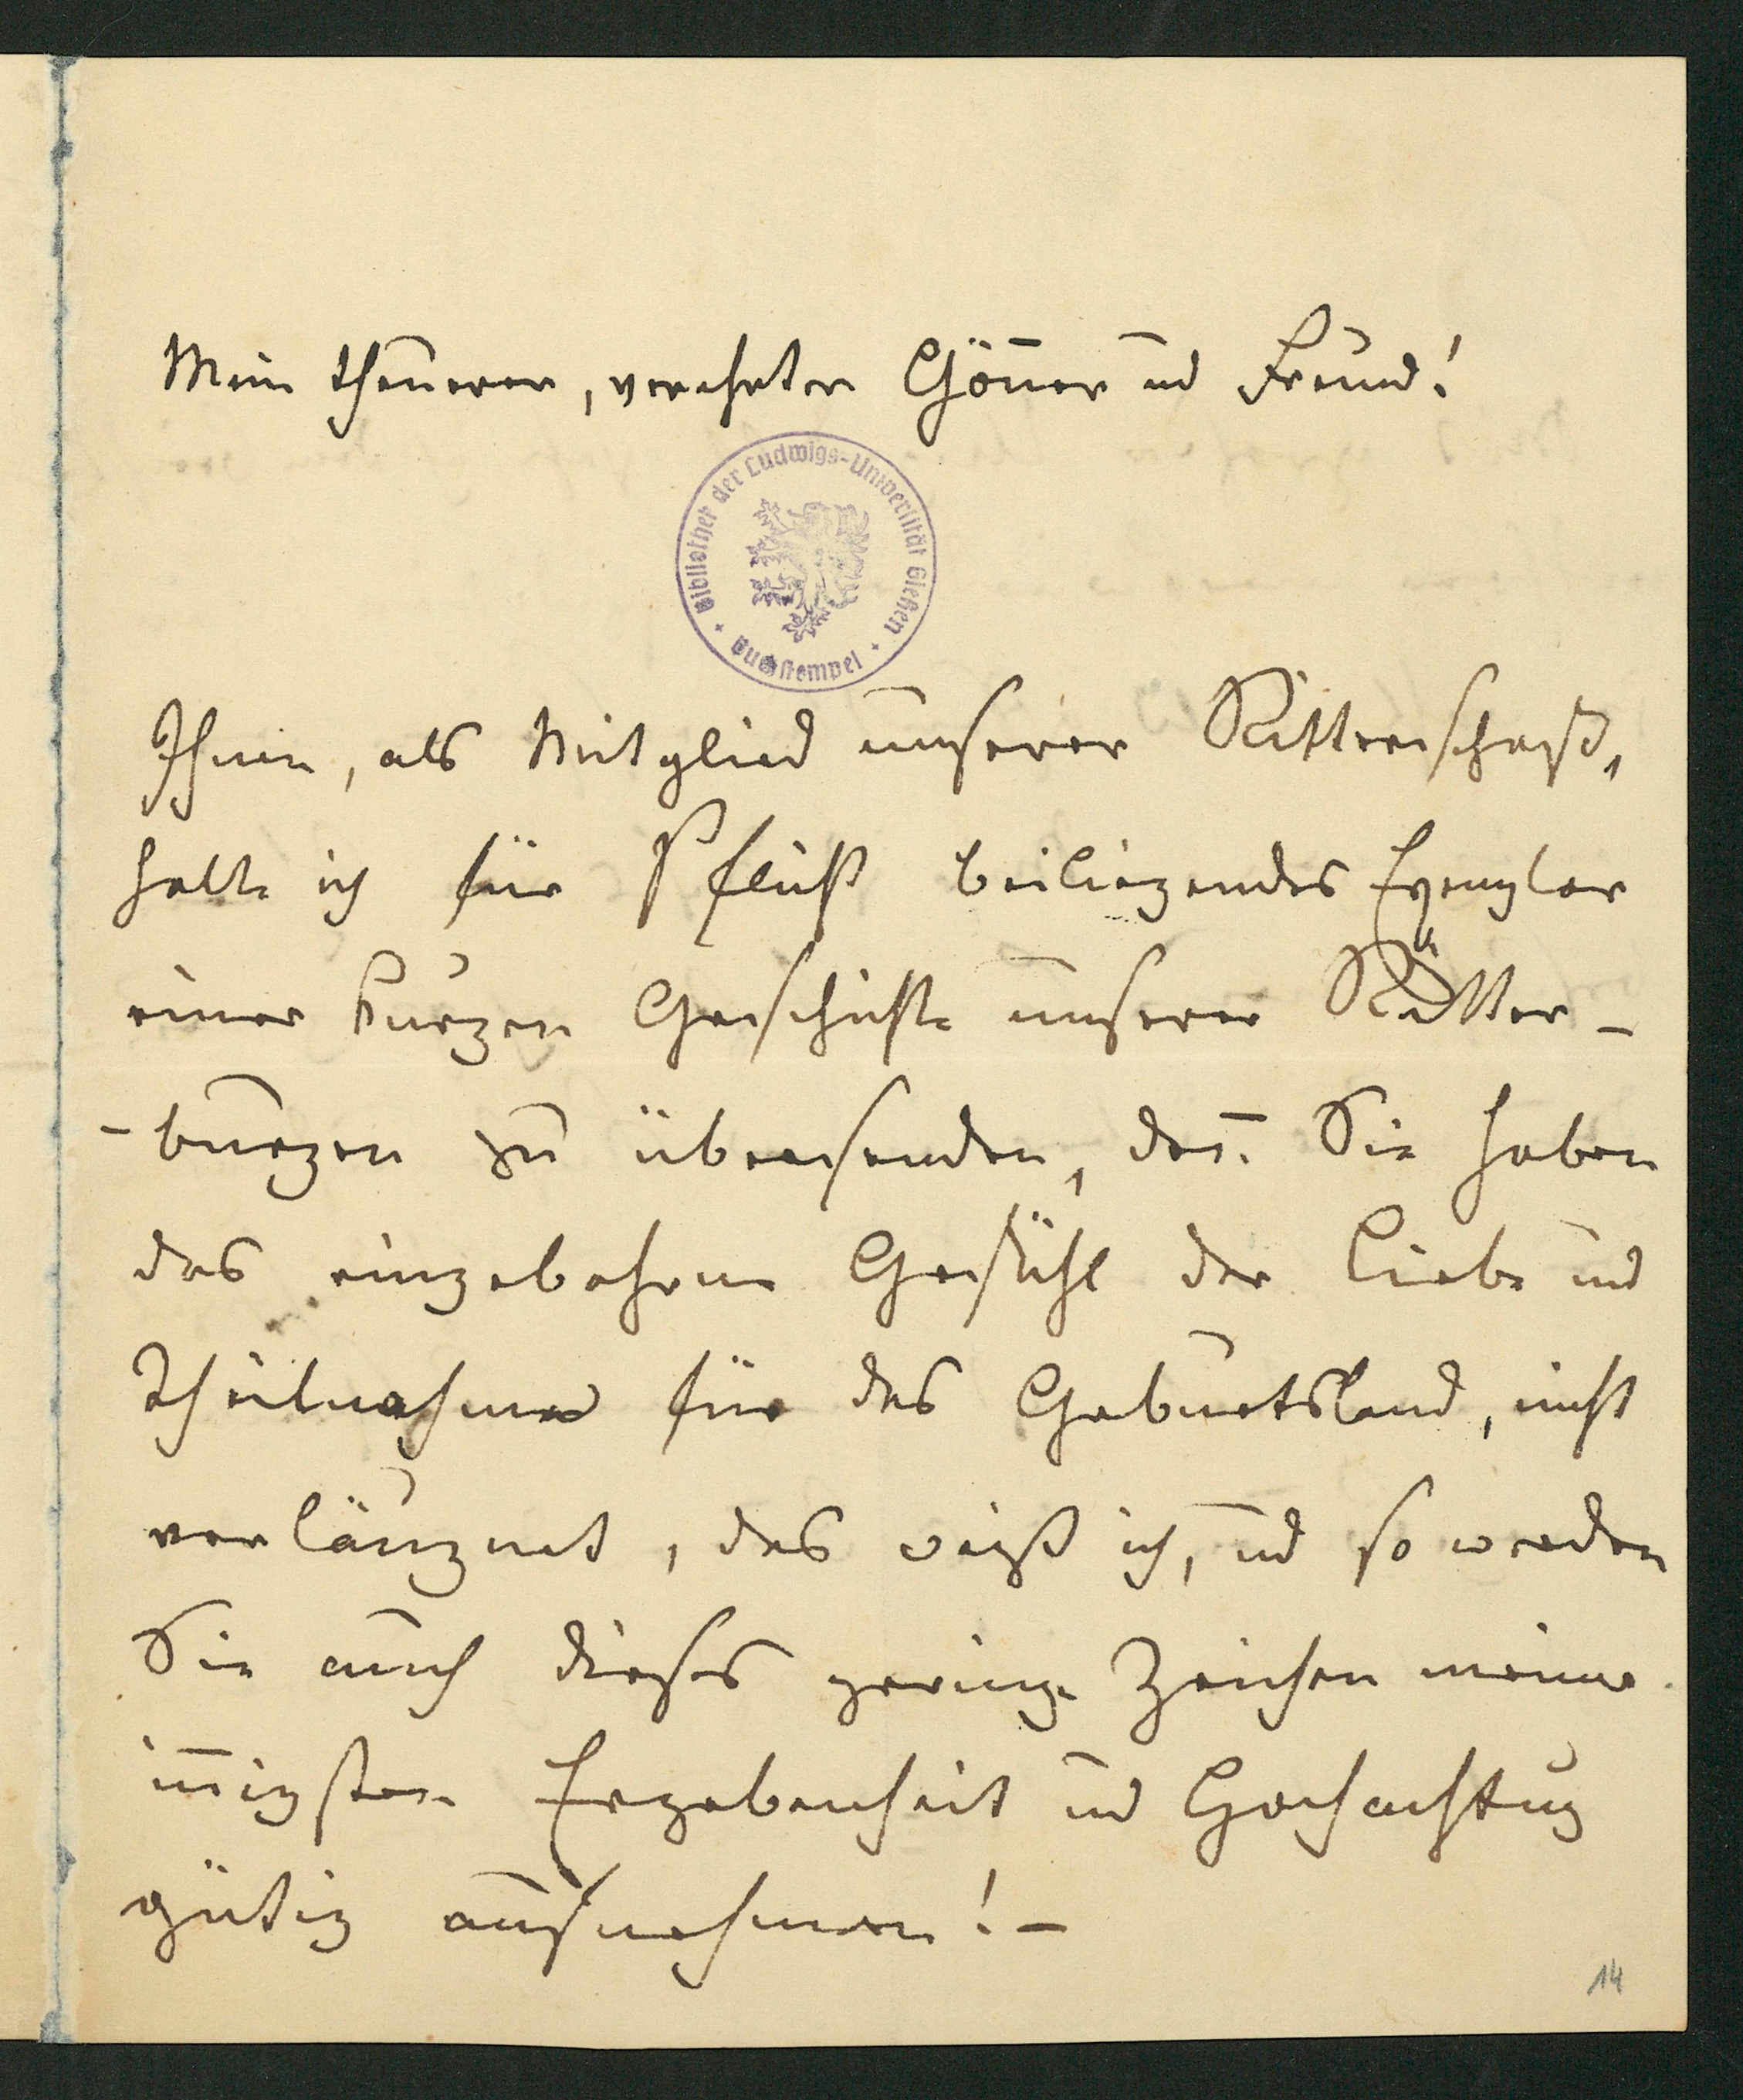 Mein theuerer, verehrter Gönner und Freund!
Bibliothek der Ludwigs-Universität Gießen
Buchstempel
Ihnen, als Mitglied unserer Ritterschaft,
halte ich für Pflicht beiliegendes Exemplar
einer kurzen Geschichte unserer Ritter-
-burgen zu übersenden, den̄ Sie haben
das eingebohrne Gefühl der Liebe und
Theilnahme für das Geburtsland, nicht
verläugnet, das weiß ich, und so werden
Sie auch dieses geringe Zeichen meiner
in̄igsten Ergebenheit und Hochachtung
gütig aufnehmen! –
14